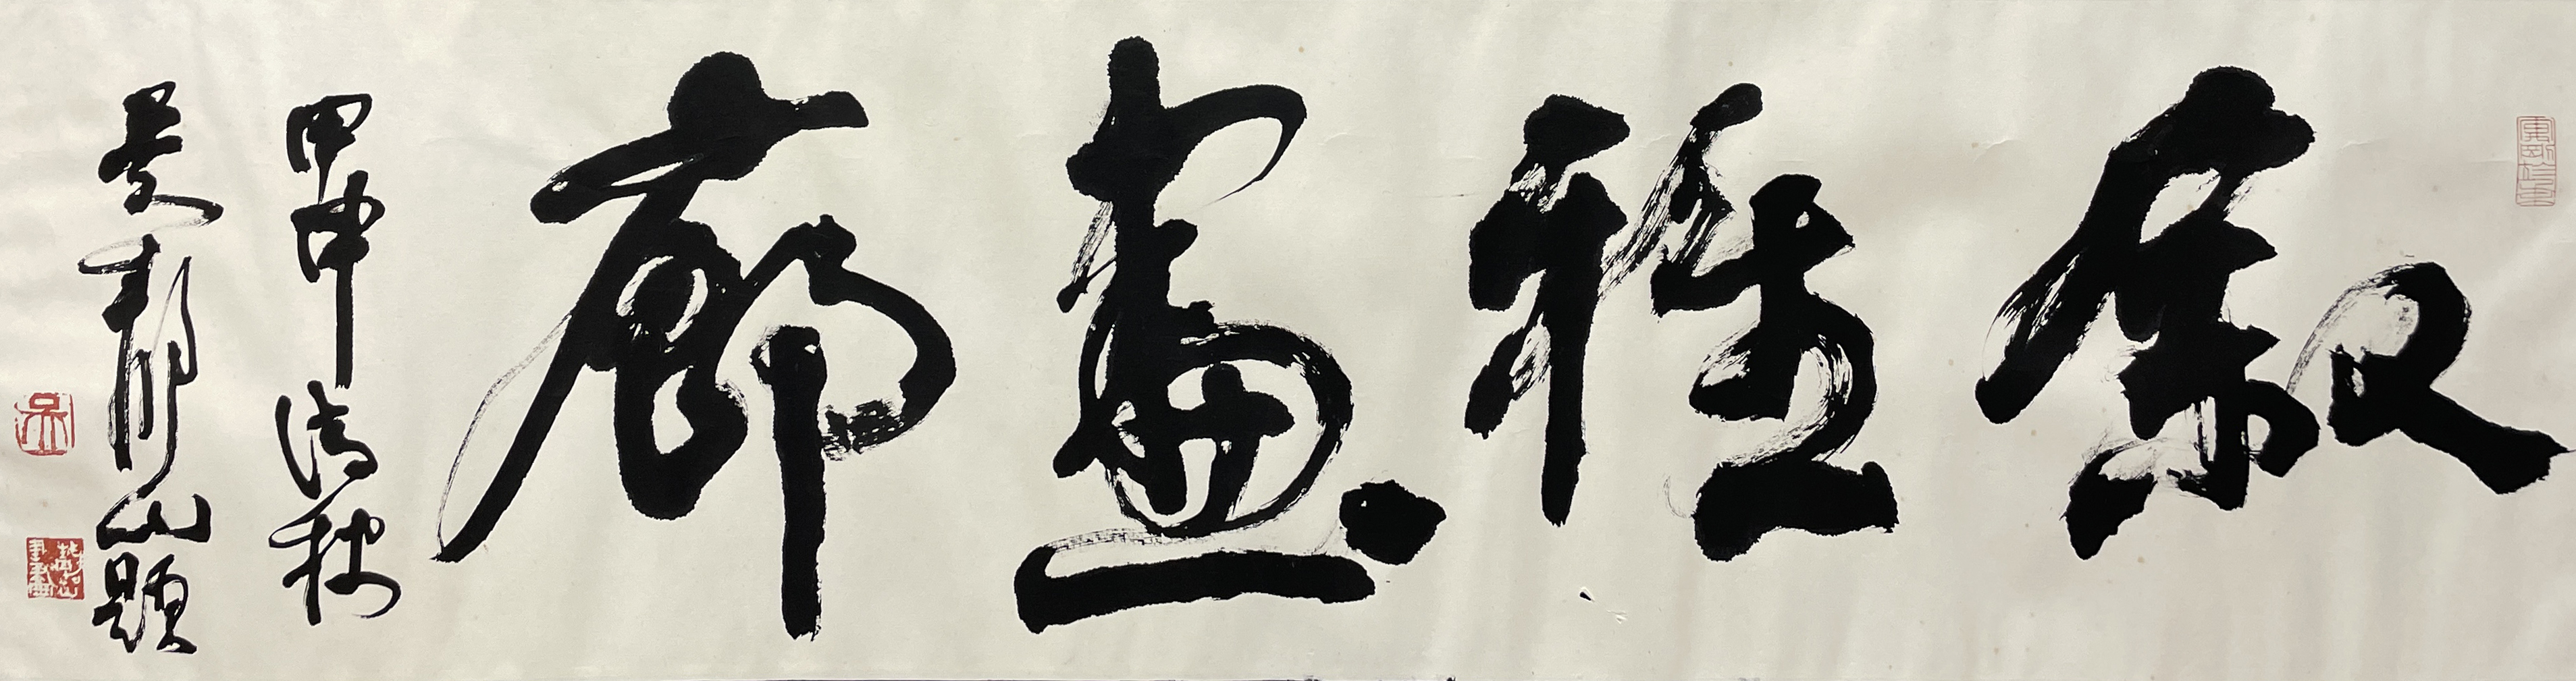 叙雅畫廊
甲申清秋
吴静山題
吴